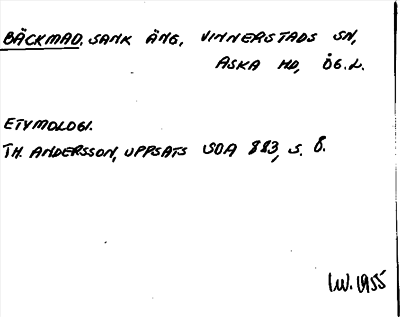 BÄCKMAD, SANK ÄNG, VINNERSTADS SN,
ASKA HD, ÖG.L.
ETYMOLOGI.
TH. ANDERSSON, UPPSATS SOA 883, S. 8.
I.W. 1955